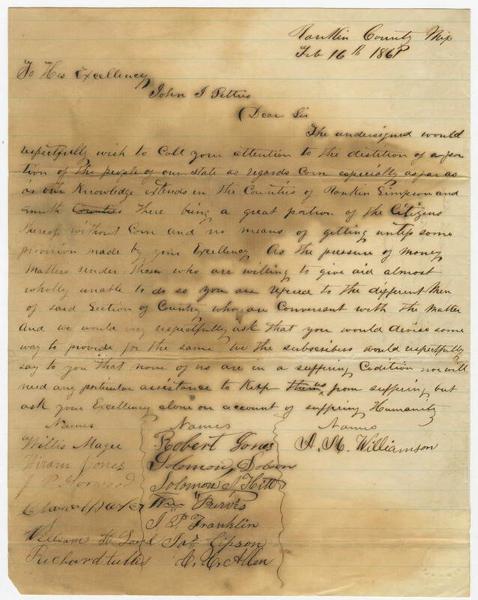 Rankin County Mix
Feb 16th 1861
To His Excellency
John J Pettus
Dear Sir
The undersigned would
respectfully wish to Call your attention to the distition of a por
tion of the people of our State as regards Corn especially as far as
as our Knowledge Extends in the Counties of Rankin Simpson and
Smith Counties There being a great portion of the Citizens
thereof without Corn and no means of getting until some
provision made by your Excellency As the pressure of money
Matters render Those who are willing to give aid almost
wholly unable to do so you are refered to the different Men
of said Section of Country who are Conversant with the Matter
And we would very respectfully ask that you would devise some
way to provide for the same We the subscribers would respectfully
say to you that none of us are in a suffering Codition nor will
need any particular assistance to Keep them from suffering but
ask your Excellency alone on account of suffering Humanity
Names Names Names
Willis Magee Robert Jones A. M. Williamson
Hiram Jones Solomon Dobson
J P Solomon
Wm Purvis
J P Franklin
William H Jas Gipson
Richard